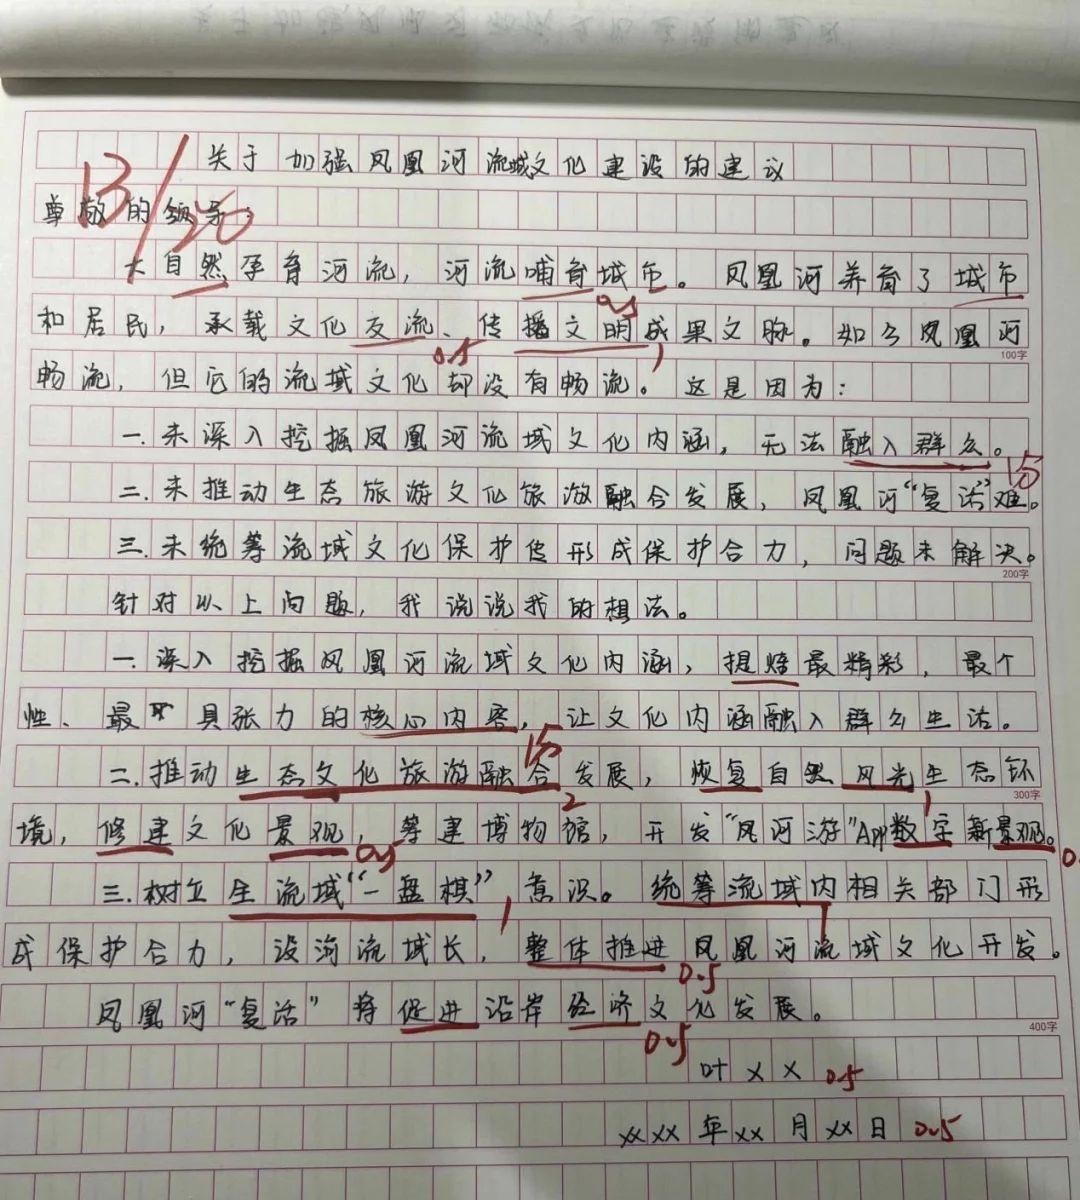 13/20
关于加强凤凰河流域文化建设的建议
尊敬的领导：
大自然孕育河流，河流哺育城市。凤凰河养育了城市 0.5
和居民，承载文化交流、传播文明成果文脉。如今凤凰河 0.5 1
100字
畅流，但它的流域文化却没有畅流。这是因为：
一.未深入挖掘凤凰河流域文化内涵，无法融入群众。
1.5
二.未推动生态旅游文化旅游融合发展，凤凰河“复活”难。
三.未统筹流域文化保护使形成保护合力，问题未解决。
200字
针对以上问题，我说说我的想法。
一.深入挖掘凤凰河流域文化内涵，提炼最精彩，最个
性、最具张力的核心内容，让文化内涵融入群众生活。
1.5
二.推动生态文化旅游融合发展，恢复自然风光生态环
2 1 300字
境，修建文化景观，筹建博物馆，开发“凤河游”App数字新景观。
0.5
三.树立生流域“一盘棋”意识。统筹流域内相关部门形
1 1
成保护合力，设河流域长，整体推进凤凰河流域文化开发。
0.5
凤凰河“复活”将促进沿岸经济文化发展。
400字
0.5
叶×× 0.5
××××年××月××日 0.5